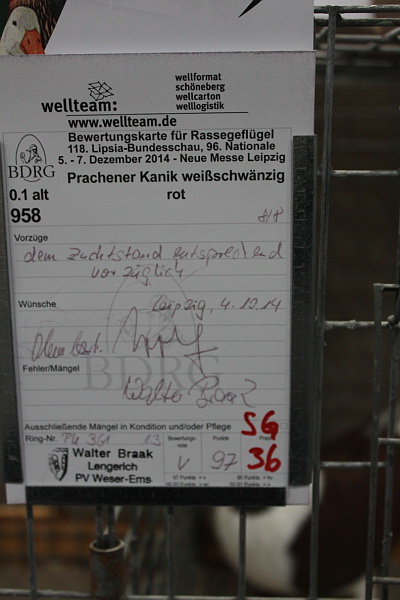 wellformat
schöneberg
wellcarton
welllogistik
wellteam:
www.wellteam.de
Bewertungskarte für Rassegeflügel
118. Lipsia-Bundesschau, 96. Nationale
5. - 7. Dezember 2014 - Neue Messe Leipzig
BDRG
Prachener Kanik weißschwänzig
0.1 alt rot
958
8/8
Vorzüge
dem Zuchtstand entsprechend
vorzüglich
Wünsche
Leipzig, 4.12.14
Fehler/Mängel
BDRG
Walter
Ausschließende Mängel in Kondition und/oder Pflege
Ring-Nr. 361 13
Bewertungsnote Punkte Preis
v 97 SG 36
Walter Braak
Lengerich
PV Weser-Ems